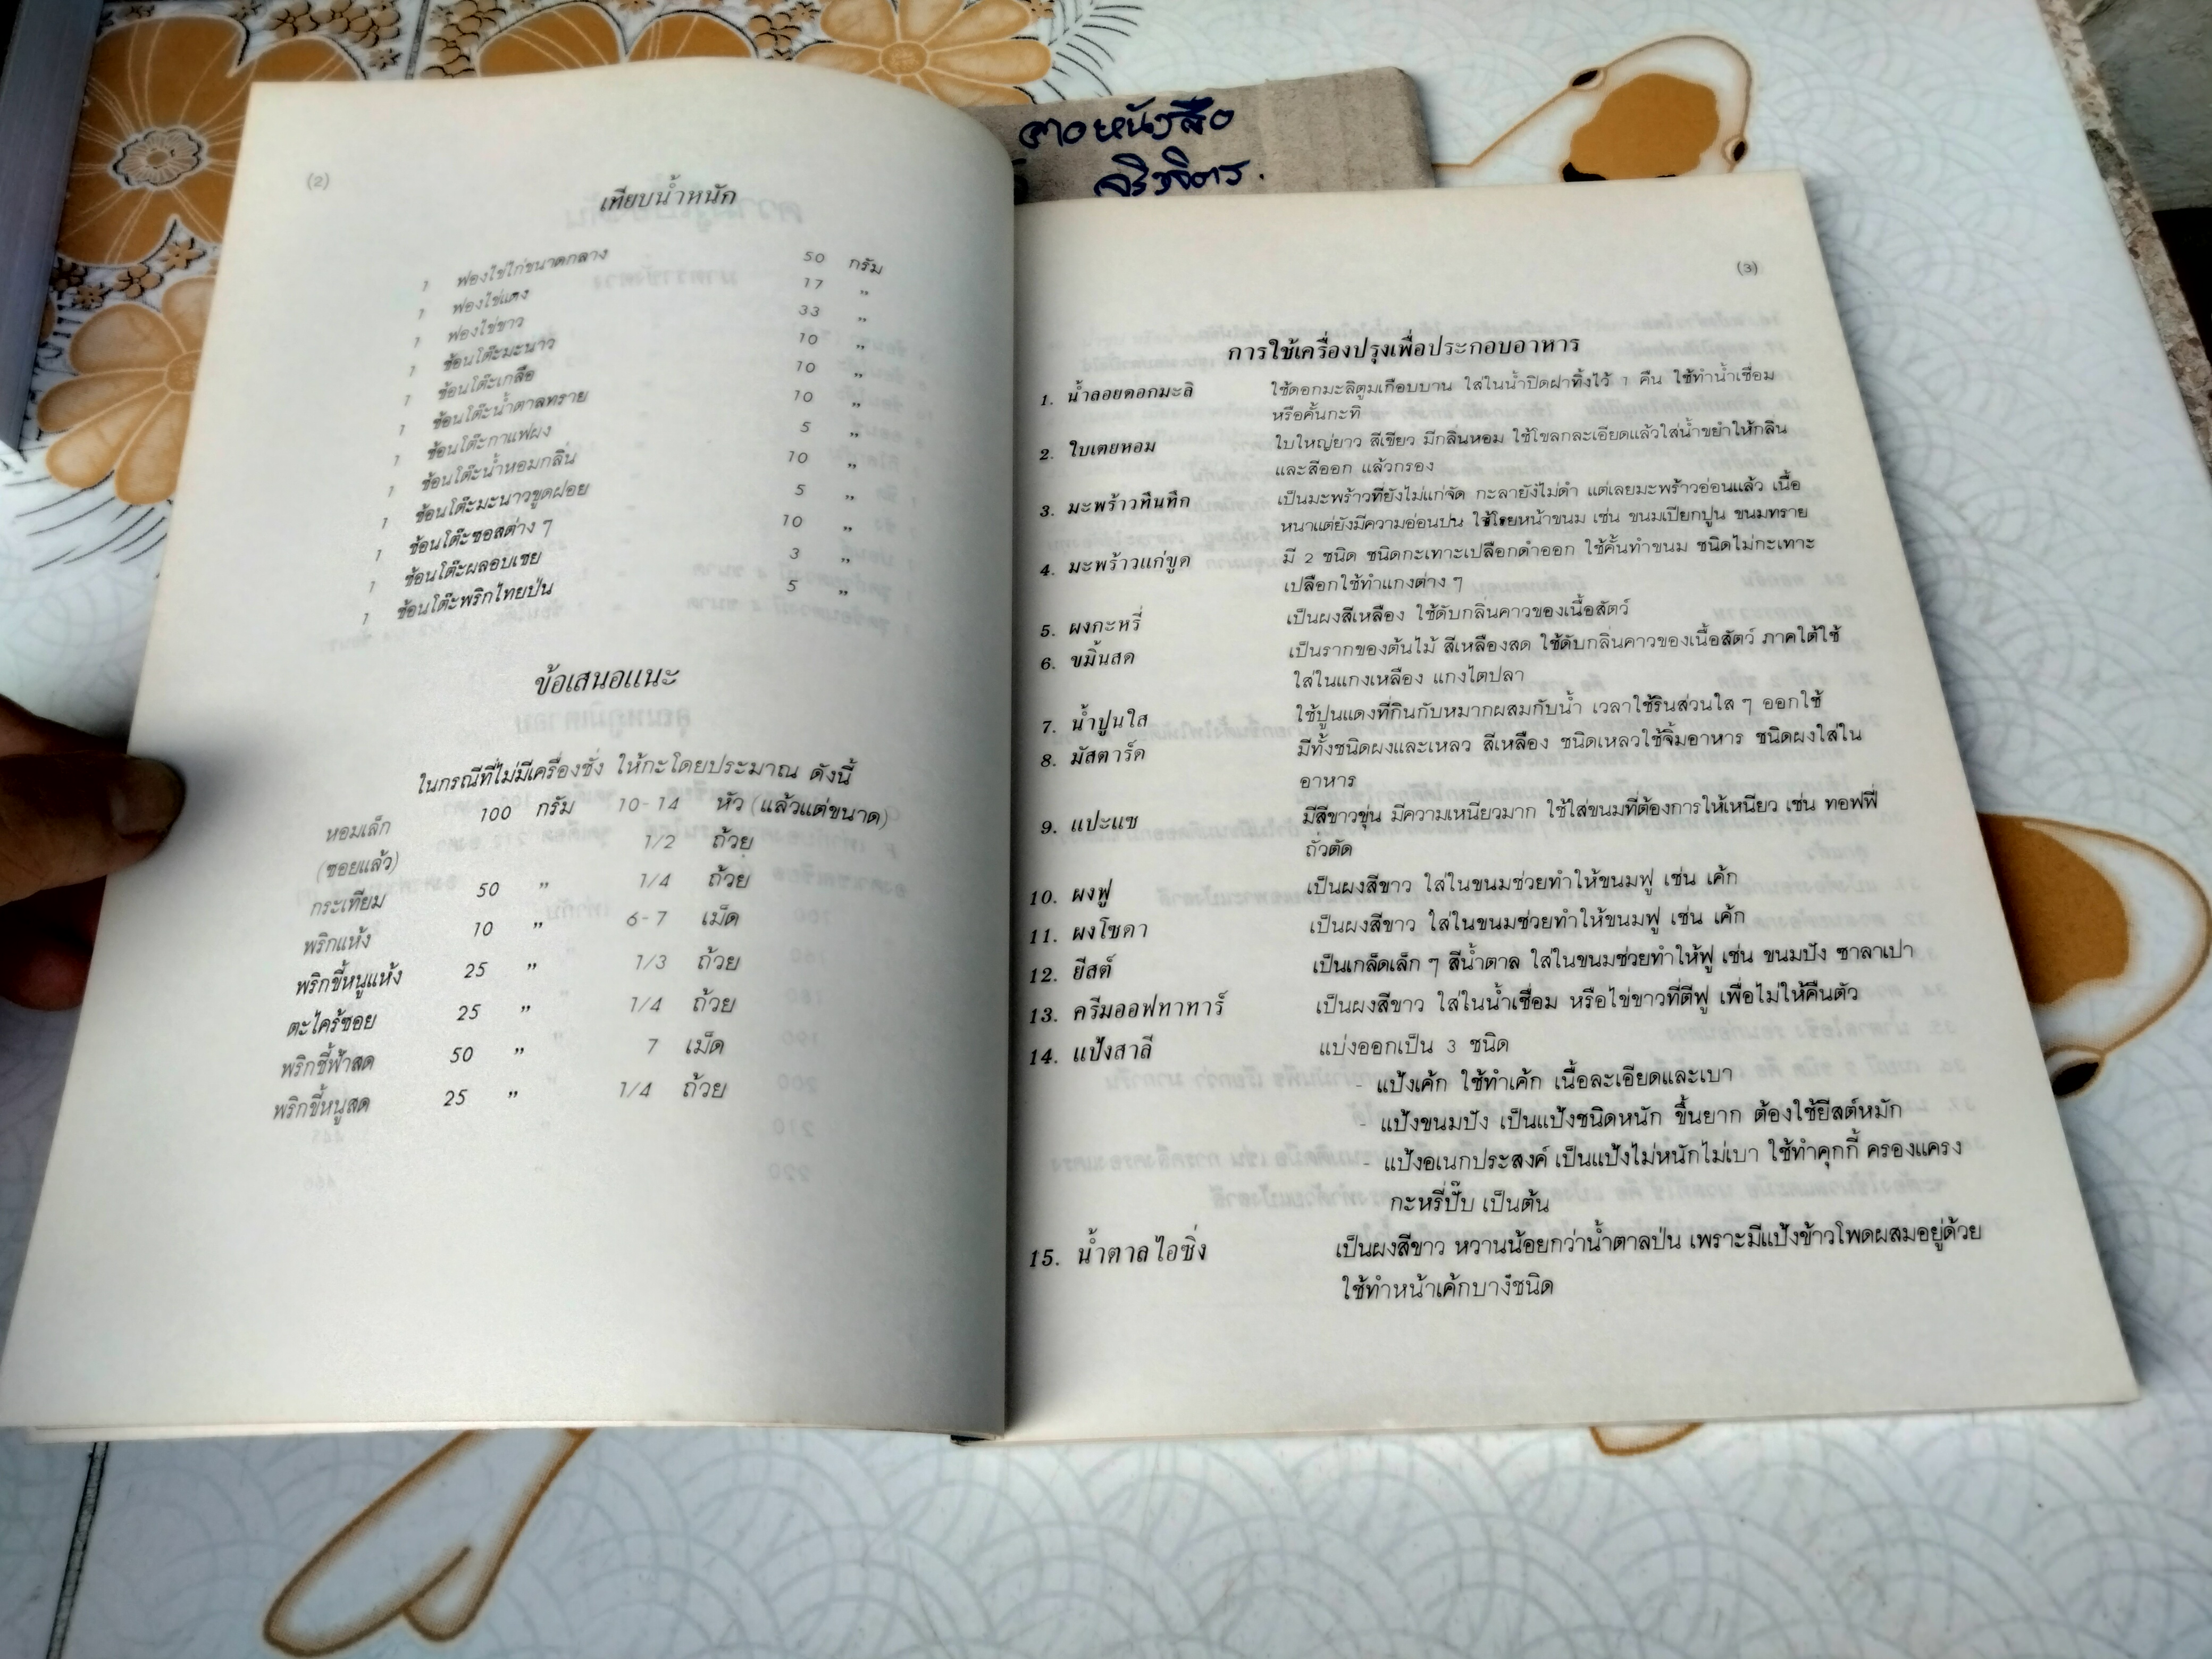 (2)
เทียบน้ำหนัก
1 ฟองไข่ไก่ขนาดกลาง 50 กรัม
1 ฟองไข่แดง 17 ,,
1 ฟองไข่ขาว 33 ,,
1 ช้อนโต๊ะมะนาว 10 ,,
1 ช้อนโต๊ะเกลือ 10 ,,
1 ช้อนโต๊ะน้ำตาลทราย 10 ,,
1 ช้อนโต๊ะกาแฟผง 5 ,,
1 ช้อนโต๊ะน้ำหอมกลิ่น 10 ,,
1 ช้อนโต๊ะมะนาวขูดฝอย 5 ,,
1 ช้อนโต๊ะซอสต่าง ๆ 10 ,,
1 ช้อนโต๊ะผลอบเชย 3 ,,
1 ช้อนโต๊ะพริกไทยป่น 5 ,,
ข้อเสนอแนะ
ในกรณีที่ไม่มีเครื่องชั่ง ให้กะโดยประมาณ ดังนี้
หอมเล็ก 100 กรัม 10-14 หัว (แล้วแต่ขนาด)
(ซอยแล้ว) 1/2 ถ้วย
กระเทียม 50 ,, 1/4 ถ้วย
พริกแห้ง 10 ,, 6-7 เม็ด
พริกขี้หนูแห้ง 25 ,, 1/3 ถ้วย
ตะไคร้ซอย 25 ,, 1/4 ถ้วย
พริกชี้ฟ้าสด 50 ,, 7 เม็ด
พริกขี้หนูสด 25 ,, 1/4 ถ้วย
ขายหนังสือ
(3)
การใช้เครื่องปรุงเพื่อประกอบอาหาร
1. น้ำลอยดอกมะลิ ใช้ดอกมะลิตูมเกือบบาน ใส่ในน้ำปิดฝาทิ้งไว้ 1 คืน ใช้ทำน้ำเชื่อม
หรือคั้นกะทิ
2. ใบเตยหอม ใบใหญ่ยาว สีเขียว มีกลิ่นหอม ใช้โขลกละเอียดแล้วใส่น้ำขยำให้กลิ่น
และสีออก แล้วกรอง
3. มะพร้าวทึนทึก เป็นมะพร้าวที่ยังไม่แก่จัด กะลายังไม่ดำ แต่เลยมะพร้าวอ่อนแล้ว เนื้อ
หนาแต่ยังมีความอ่อนปน ใช้โรยหน้าขนม เช่น ขนมเปียกปูน ขนมทราย
4. มะพร้าวแก่ขูด มี 2 ชนิด ชนิดกะเทาะเปลือกดำออก ใช้คั้นทำขนม ชนิดไม่กะเทาะ
เปลือกใช้ทำแกงต่าง ๆ
5. ผงกะหรี่ เป็นผงสีเหลือง ใช้ดับกลิ่นคาวของเนื้อสัตว์
6. ขมิ้นสด เป็นรากของต้นไม้ สีเหลืองสด ใช้ดับกลิ่นคาวของเนื้อสัตว์ ภาคใต้ใช้
ใส่ในแกงเหลือง แกงไตปลา
7. น้ำปูนใส ใช้ปูนแดงที่กินกับหมากผสมกับน้ำ เวลาใช้รินส่วนใส ๆ ออกใช้
8. มัสตาร์ด มีทั้งชนิดผงและเหลว สีเหลือง ชนิดเหลวใช้จิ้มอาหาร ชนิดผงใส่ใน
อาหาร
9. แปะแซ มีสีขาวขุ่น มีความเหนียวมาก ใช้ใส่ขนมที่ต้องการให้เหนียว เช่น ทอฟฟี่
ถั่วตัด
10. ผงฟู เป็นผงสีขาว ใส่ในขนมช่วยทำให้ขนมฟู เช่น เค้ก
11. ผงโซดา เป็นผงสีขาว ใส่ในขนมช่วยทำให้ขนมฟู เช่น เค้ก
12. ยีสต์ เป็นเกล็ดเล็ก ๆ สีน้ำตาล ใส่ในขนมช่วยทำให้ฟู เช่น ขนมปัง ซาลาเปา
13. ครีมออฟทาทาร์ เป็นผงสีขาว ใส่ในน้ำเชื่อม หรือไข่ขาวที่ตีฟู เพื่อไม่ให้คืนตัว
14. แป้งสาลี แบ่งออกเป็น 3 ชนิด
- แป้งเค้ก ใช้ทำเค้ก เนื้อละเอียดและเบา
- แป้งขนมปัง เป็นแป้งชนิดหนัก ขึ้นยาก ต้องใช้ยีสต์หมัก
- แป้งอเนกประสงค์ เป็นแป้งไม่หนักไม่เบา ใช้ทำคุกกี้ ครองแครง
กะหรี่ปั๊บ เป็นต้น
15. น้ำตาลไอซิ่ง เป็นผงสีขาว หวานน้อยกว่าน้ำตาลป่น เพราะมีแป้งข้าวโพดผสมอยู่ด้วย
ใช้ทำหน้าเค้กบางชนิด